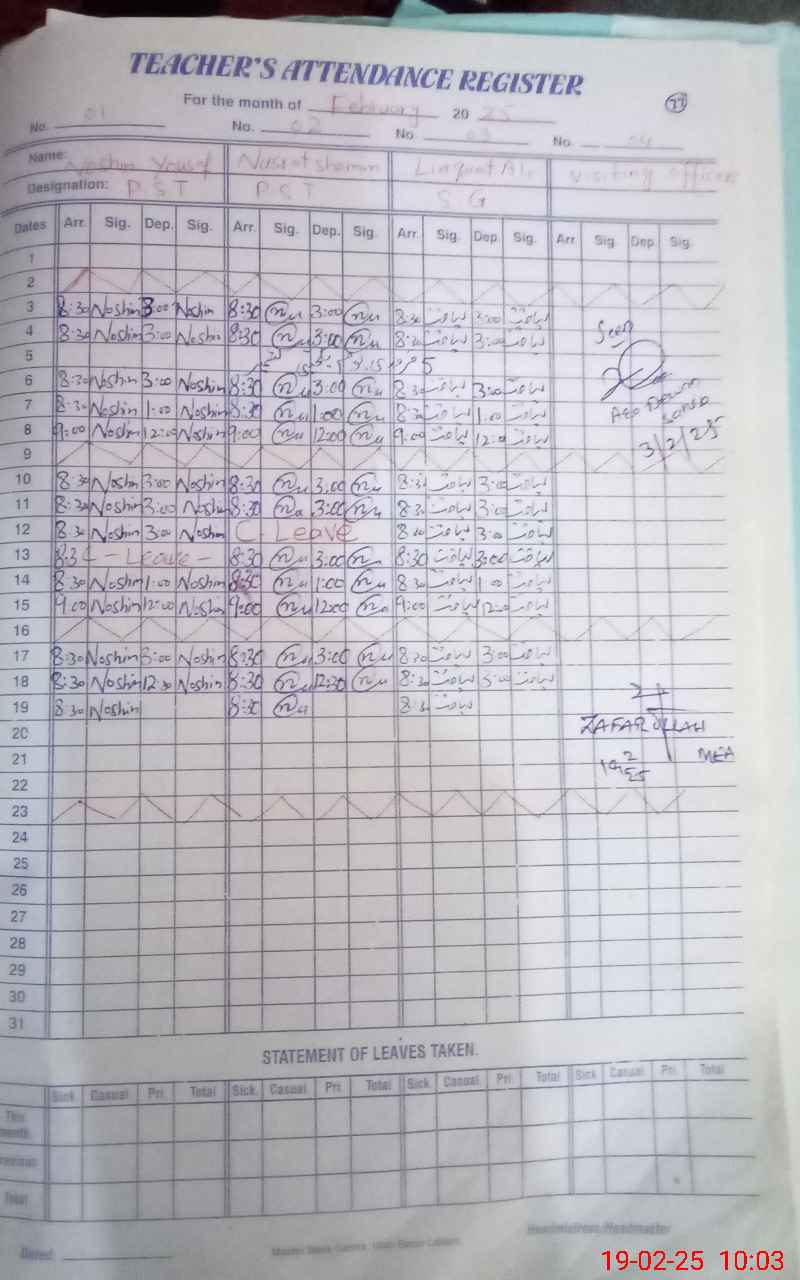 TEACHER'S ATTENDANCE REGISTER
For the month of February 20 25
77
No. 01 No. 02 No. 03 No. 04
Name: Noshin Yousaf Nusrat shamim Liaquat Ali visiting officer
Designation: P S T P S T S G
Dates Arr. Sig. Dep. Sig. Arr. Sig. Dep. Sig. Arr. Sig. Dep. Sig. Arr. Sig. Dep. Sig.
1
2
3 8:30 Noshin 3:00 Noshin 8:30 3:00 8:30 لیاقت 3:00 لیاقت
4 8:30 Noshin 3:00 Noshin 8:30 3:00 8:30 لیاقت 3:00 لیاقت Seen
5
6 8:30 Noshin 3:00 Noshin 8:30 3:00 8:30 لیاقت 3:00 لیاقت
7 8:30 Noshin 1:00 Noshin 8:30 1:00 8:30 لیاقت 1:00 لیاقت AEO
8 9:00 Noshin 12:00 Noshin 9:00 12:00 9:00 لیاقت 12:00 لیاقت 3/2/25
9
10 8:30 Noshin 3:00 Noshin 8:30 3:00 8:30 لیاقت 3:00 لیاقت
11 8:30 Noshin 3:00 Noshin 8:30 3:00 8:30 لیاقت 3:00 لیاقت
12 8:30 Noshin 3:00 Noshin C. Leave 8:30 لیاقت 3:00 لیاقت
13 8:30 C - Leave - 8:30 3:00 8:30 لیاقت 3:00 لیاقت
14 8:30 Noshin 1:00 Noshin 8:30 1:00 8:30 لیاقت 1:00 لیاقت
15 9:00 Noshin 12:00 Noshin 9:00 12:00 9:00 لیاقت 12:00 لیاقت
16
17 8:30 Noshin 3:00 Noshin 8:30 3:00 8:30 لیاقت 3:00 لیاقت
18 8:30 Noshin 12:30 Noshin 8:30 12:30 8:30 لیاقت 3:00 لیاقت
19 8:30 Noshin 8:30 8:30 لیاقت
20 ZAFAR ULLAH
21 MEA
19 2 25
22
23
24
25
26
27
28
29
30
31
STATEMENT OF LEAVES TAKEN.
Sick Casual Pri. Total Sick Casual Pri. Total Sick Casual Pri. Total Sick Casual Pri. Total
This month
Previous
Total
Headmistress/Headmaster
Dated:
19-02-25 10:03